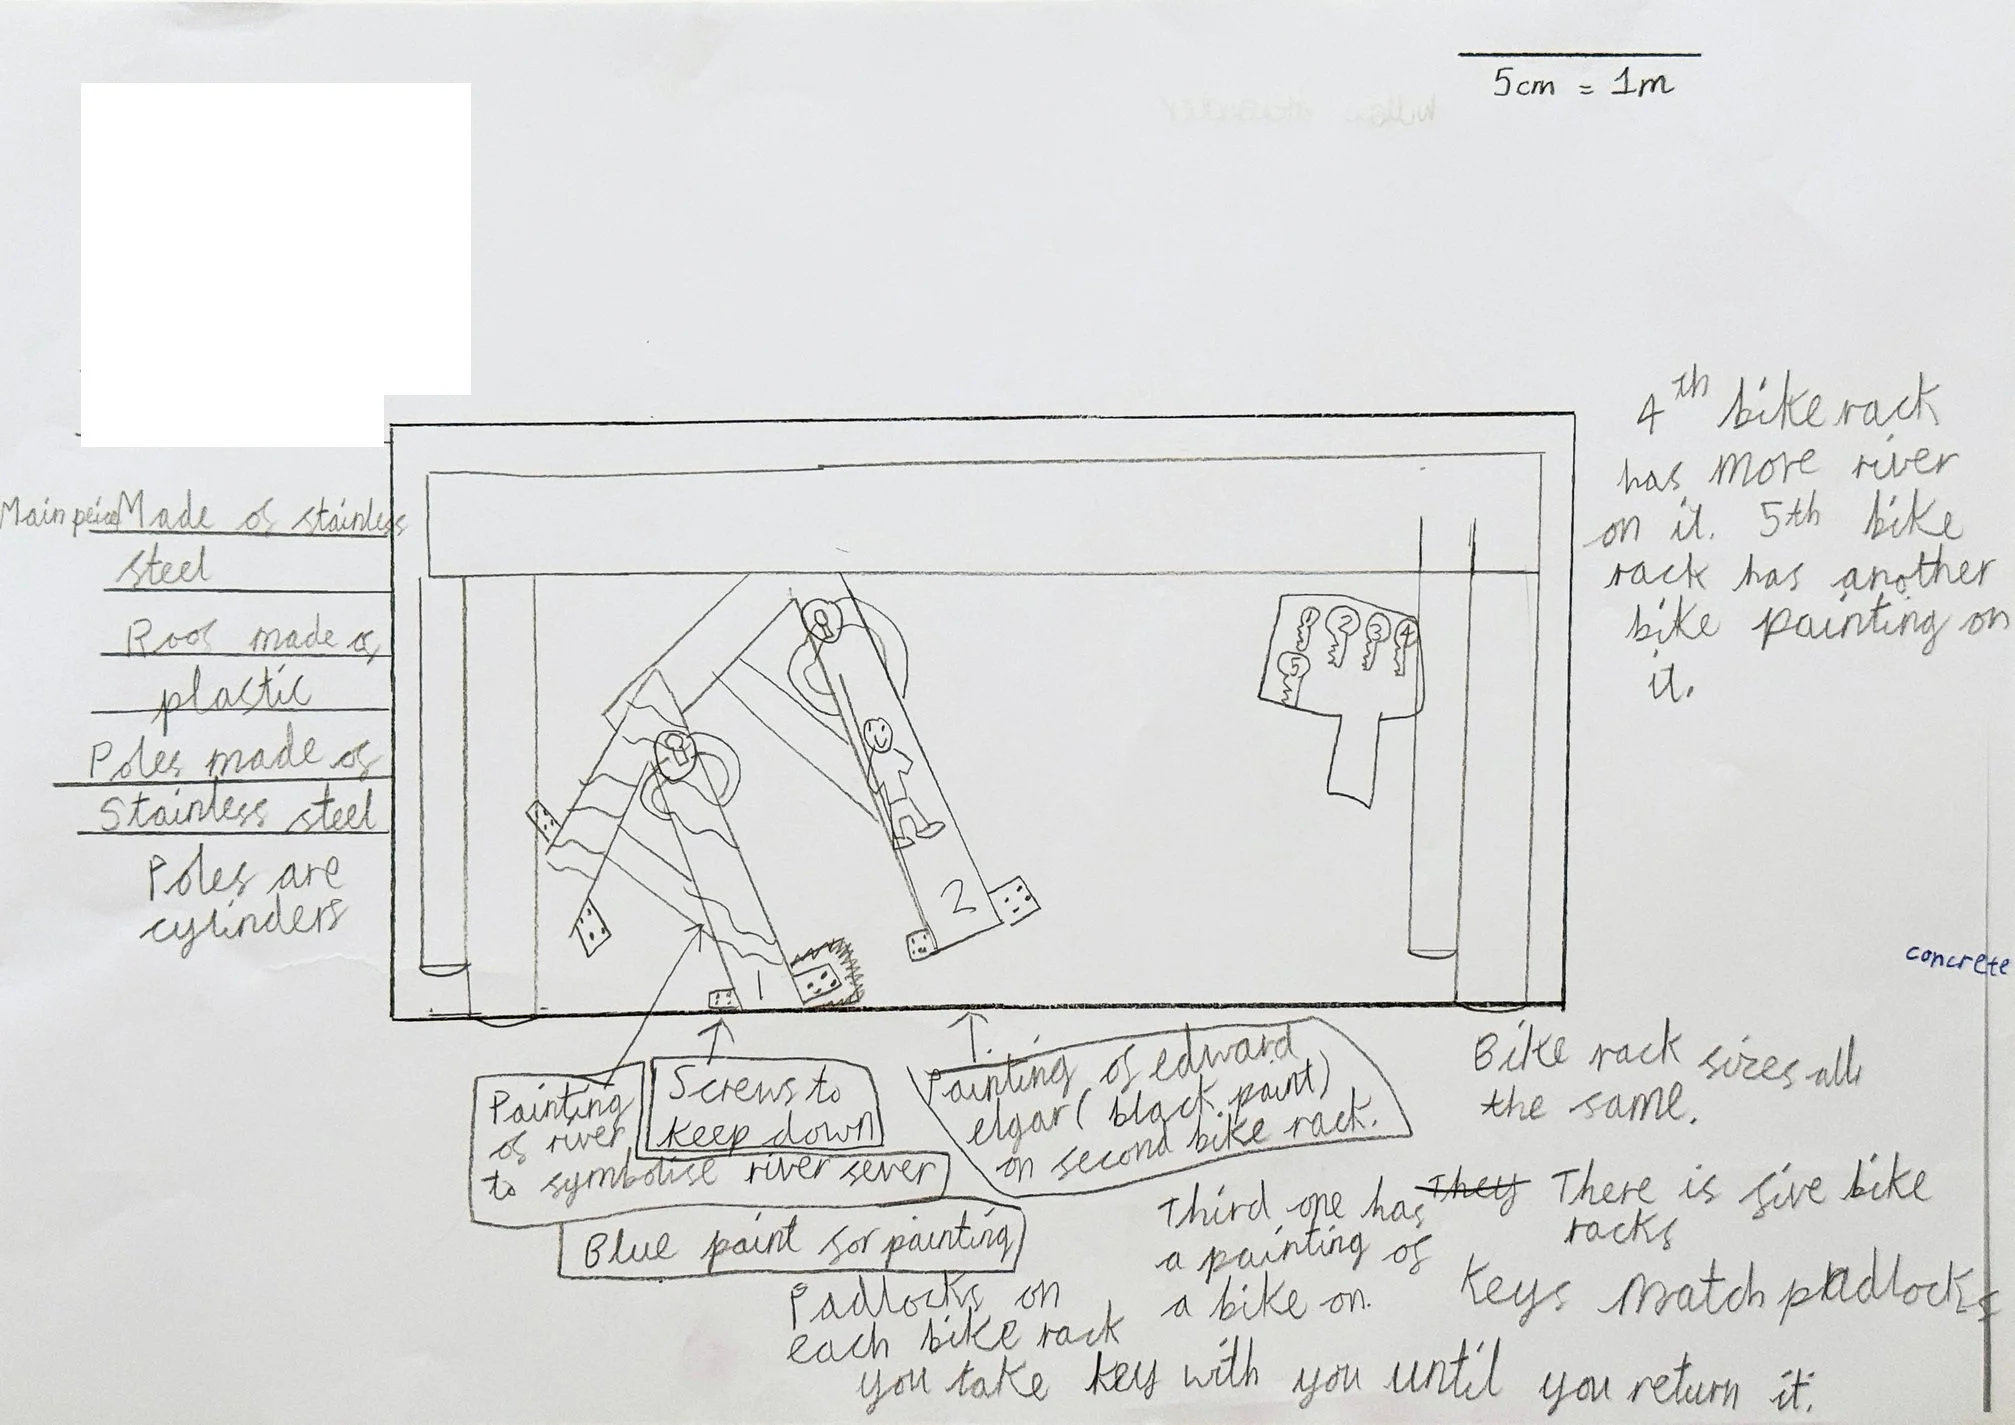 5cm = 1m
4th bike rack
has more river
on it. 5th bike
rack has another
bike painting on
it.
Main peice Made of stainless
steel
Roof made of
plastic
Poles made of
Stainless steel
Poles are
cylinders
1 2 3 4
5
2
1
concrete
Painting
of river
to symbolise river sever
Screws to
keep down
Painting of edward
elgar (black paint)
on second bike rack.
Blue paint for painting
Bike rack sizes all
the same.
They There is five bike
racks
Third one has
a painting of
a bike on.
Keys match padlocks
Padlocks on
each bike rack
you take key with you until you return it.